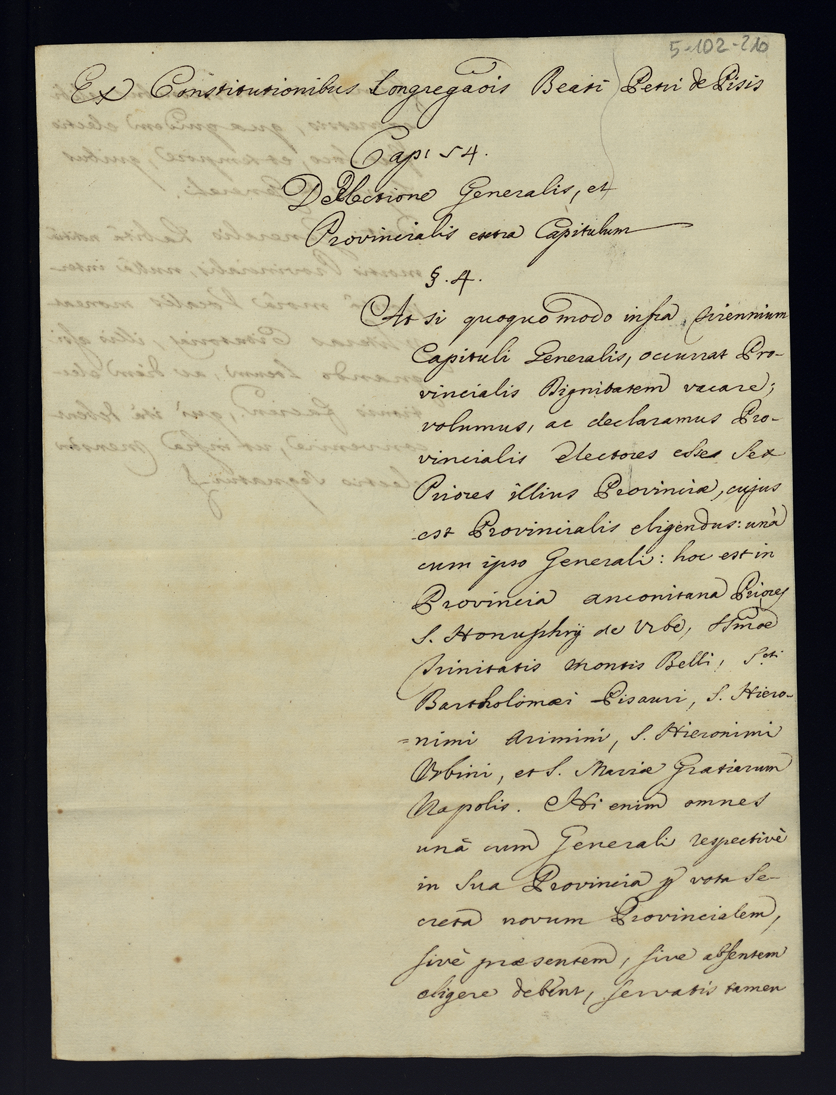 5-102-210
Ex Constitutionibus Congregãois Beati Petri de Pisis
Cap: 54.
De Electione Generalis, et
Provincialis extra Capitulum
§. 4.
At si quoquo modo infra Triennium
Capituli Generalis, occurrat Pro-
vincialis Dignitatem vacare;
volumus, ac declaramus Pro-
vincialis Electores esse Sex
Priores illius Provinciæ, cujus
est Provincialis eligendus: unà
cum ipso Generali: hoc est in
Provincia Anconitana Priores
S. Honuphrij de Urbe, SSmæ
Trinitatis Montis Belli, Scti
Bartholomæi Pisauri, S. Hiero-
=nimi Arimini, S. Hieronimi
Urbini, et S. Mariæ Gratiarum
Napolis. Hi enim omnes
unà cum Generali respectivè
in sua Provincia p vota Se-
creta novum Provincialem,
sivè præsentem, sive absentem
eligere debent, servatis tamen